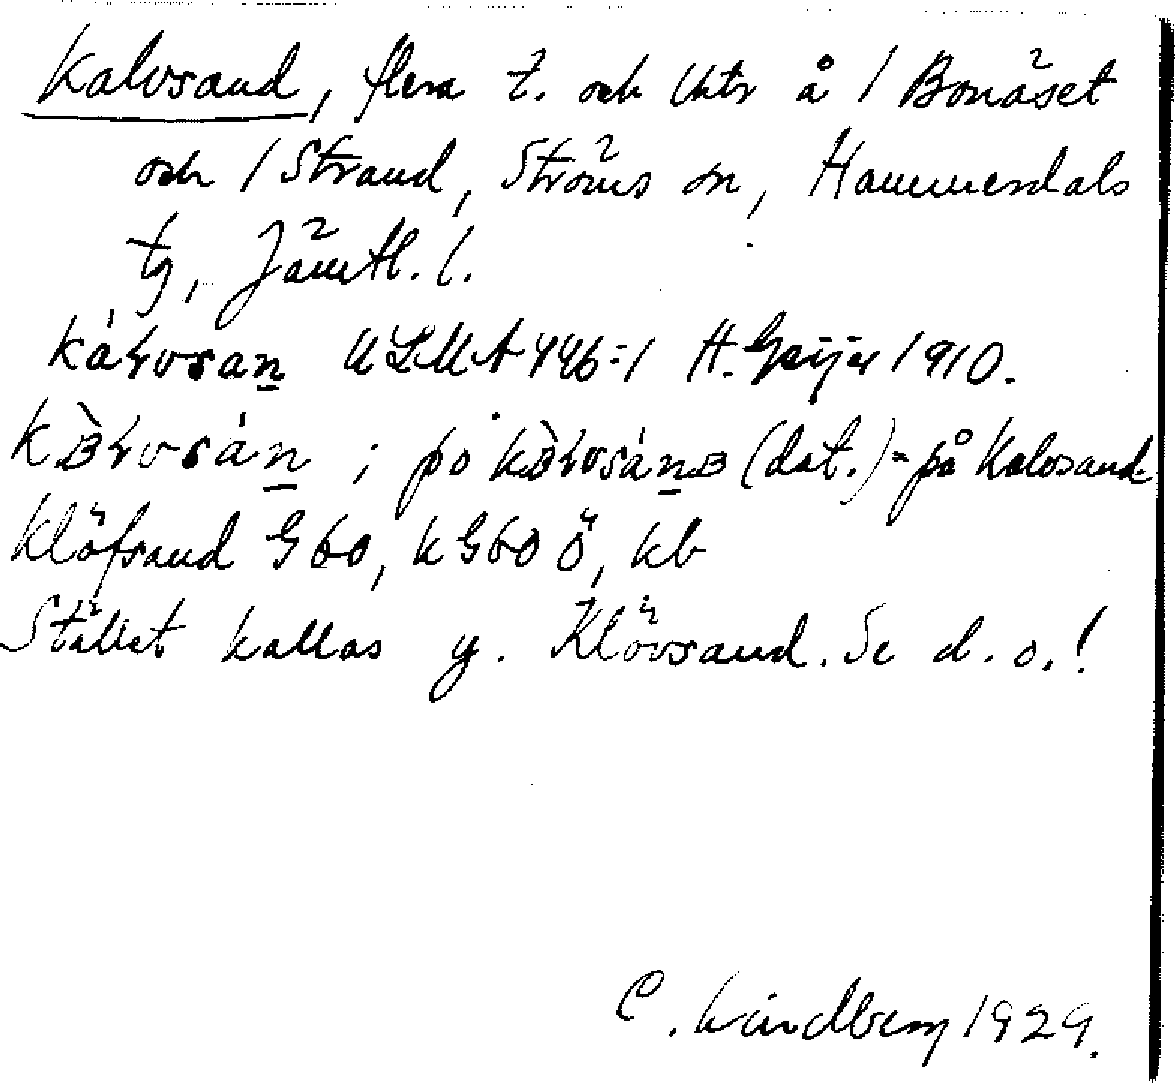 Kalvsand, flera t. och lhtr å / Bonäset
och / Strand, Ströms sn, Hammerdals
tg, Jämtl. l.
ULMA 446:1 H. Geijer 1910.
; (dat.) = på Kalvsand
Klöfsand G 60, k G 60 Ö, kb
Stället kallas y. Klövsand. Se d. o.!
C. Lindberg 1929.